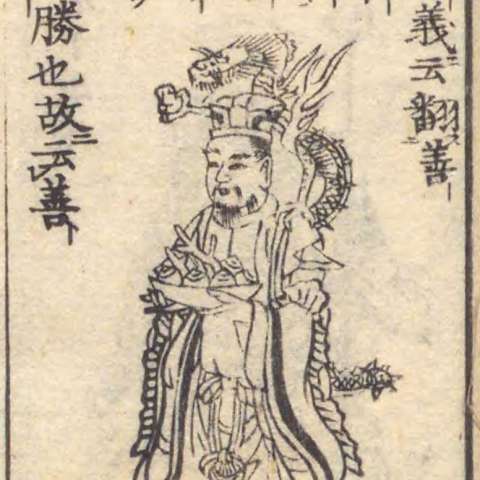 義云翻善
勝也故云善